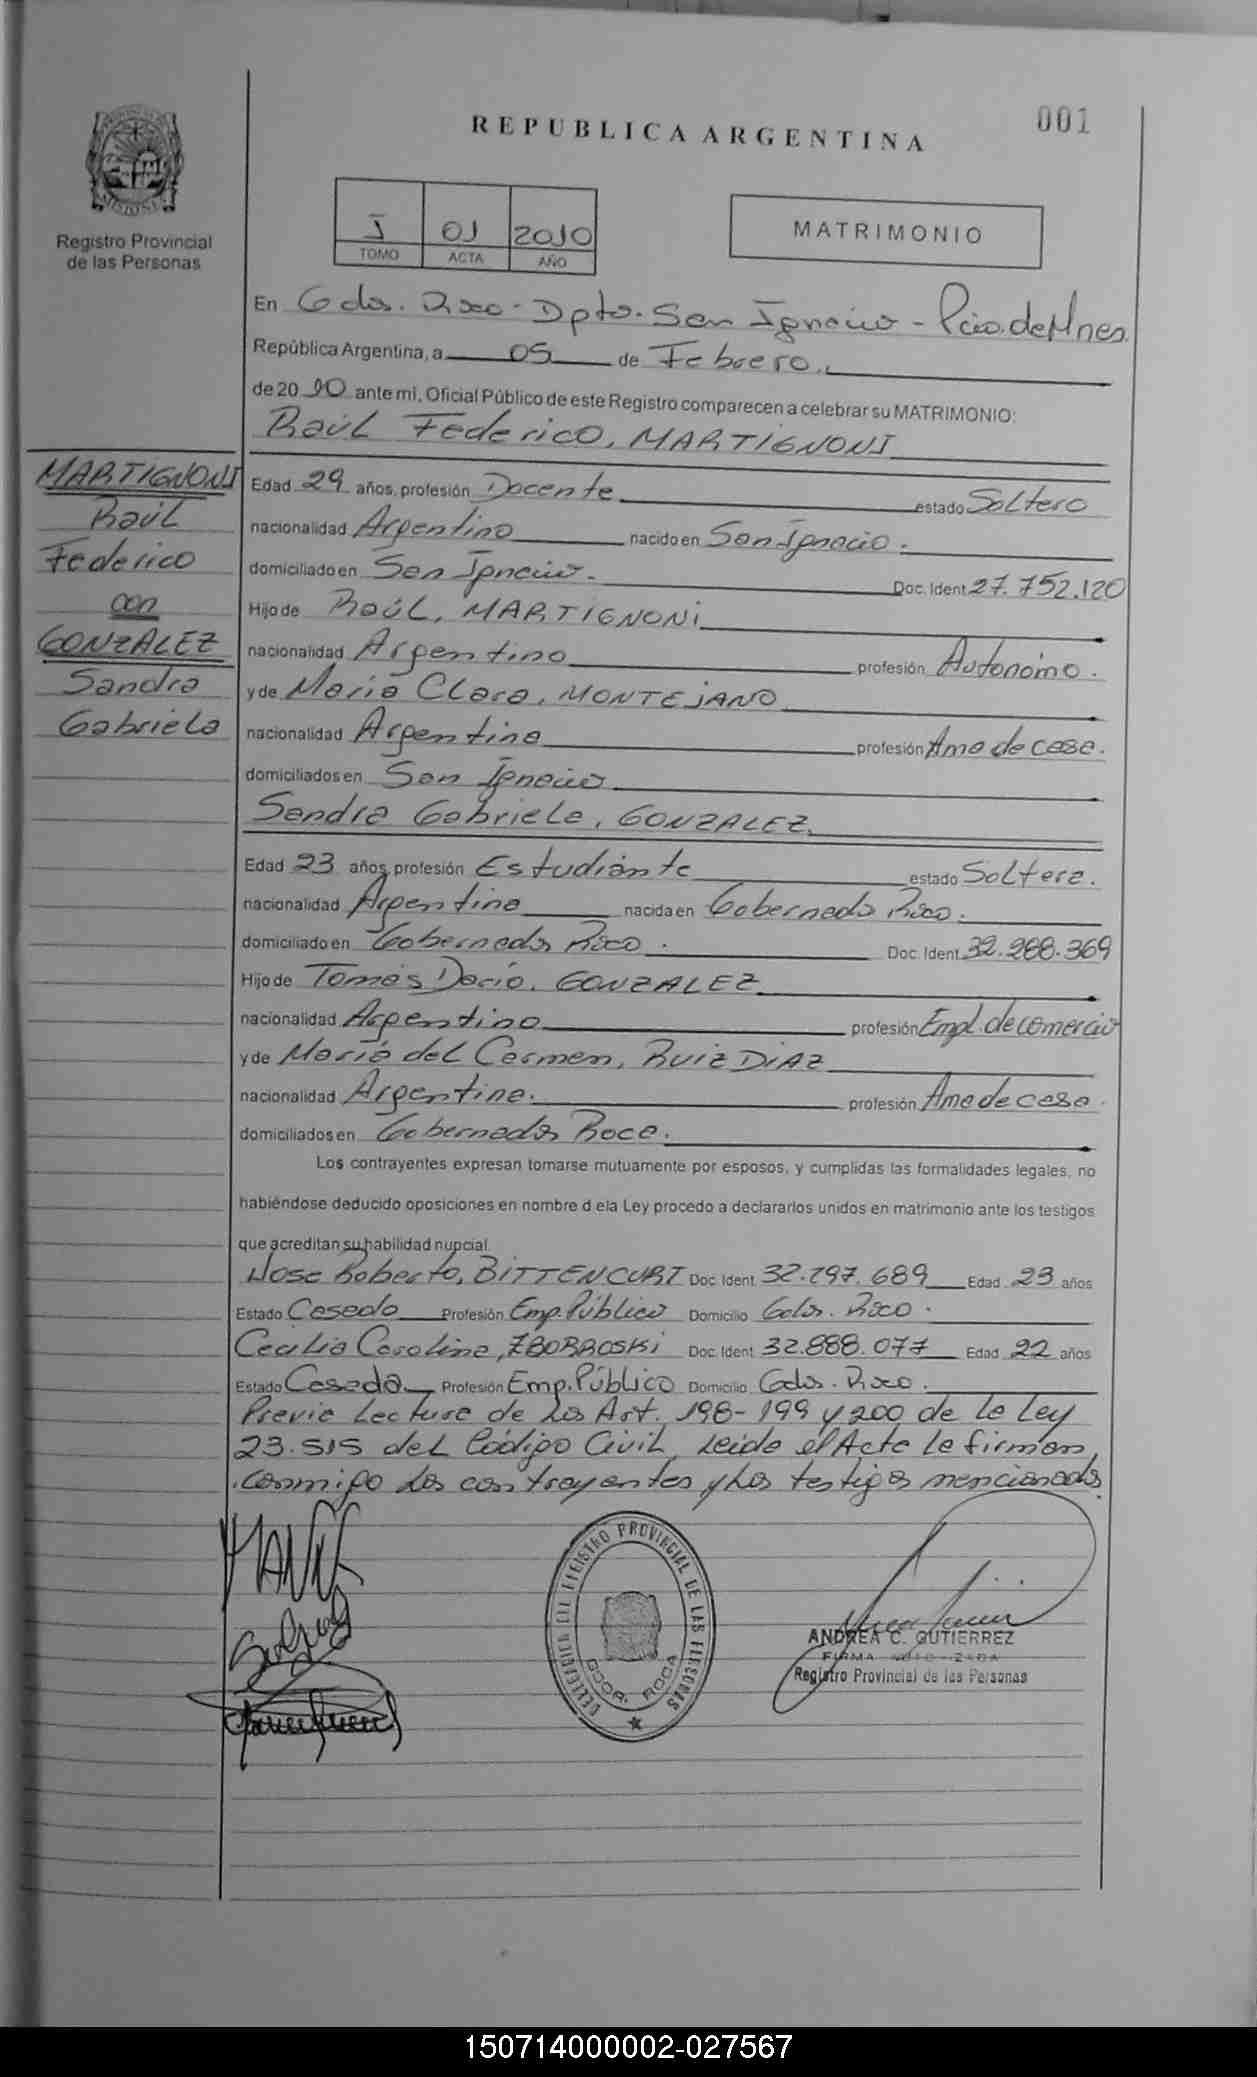 REPUBLICA ARGENTINA
001
Registro Provincial
de las Personas
I 01 2010
TOMO ACTA AÑO
MATRIMONIO
En Gdor. Roca - Dpto. San Ignacio - Pcia. de Mnes.
República Argentina, a 05 de Febrero.
de 20 10 ante mi, Oficial Público de este Registro comparecen a celebrar su MATRIMONIO:
Raúl Federico, MARTIGNONI
MARTIGNONI
Raúl
Federico
con
GONZALEZ
Sandra
Gabriela
Edad 29 años, profesión Docente estado Soltero
nacionalidad Argentino nacido en San Ignacio.
domiciliado en San Ignacio. Doc. Ident 27.752.120
Hijo de Raúl, MARTIGNONI
nacionalidad Argentino profesión Autonómo.
y de María Clara, MONTEJANO
nacionalidad Argentina profesión Ama de casa.
domiciliados en San Ignacio
Sandra Gabriela, GONZALEZ.
Edad 23 años, profesión Estudiante estado Soltera.
nacionalidad Argentina nacida en Gobernador Roca.
domiciliado en Gobernador Roca. Doc. Ident 32.288.369
Hijo de Tomás Dacio, GONZALEZ
nacionalidad Argentino profesión Empl. de comercio
y de María del Carmen, RUIZ DIAZ
nacionalidad Argentina. profesión Ama de casa.
domiciliados en Gobernador Roca.
Los contrayentes expresan tomarse mutuamente por esposos, y cumplidas las formalidades legales, no
habiéndose deducido oposiciones en nombre d ela Ley procedo a declararlos unidos en matrimonio ante los testigos
que acreditan su habilidad nupcial.
Jose Roberto, BITTENCURT Doc. Ident 32.297.689 Edad 23 años
Estado Casado Profesión Emp. Público Domicilio Gdor. Roca.
Cecilia Carolina, ZBORROSKI Doc. Ident 32.888.077 Edad 22 años
Estado Casada Profesión Emp. Público Domicilio Gdor. Roca.
Previa Lectura de Los Art. 198-199 y 200 de la Ley
23.515 del Código Civil, Leida el Acta la firman,
conmigo Los contrayentes y Los testigos mencionados.
DELEGACION DEL REGISTRO PROVINCIAL DE LAS PERSONAS
GDOR. ROCA
ANDREA C. GUTIERREZ
FIRMA AUTORIZADA
Registro Provincial de las Personas
150714000002-027567